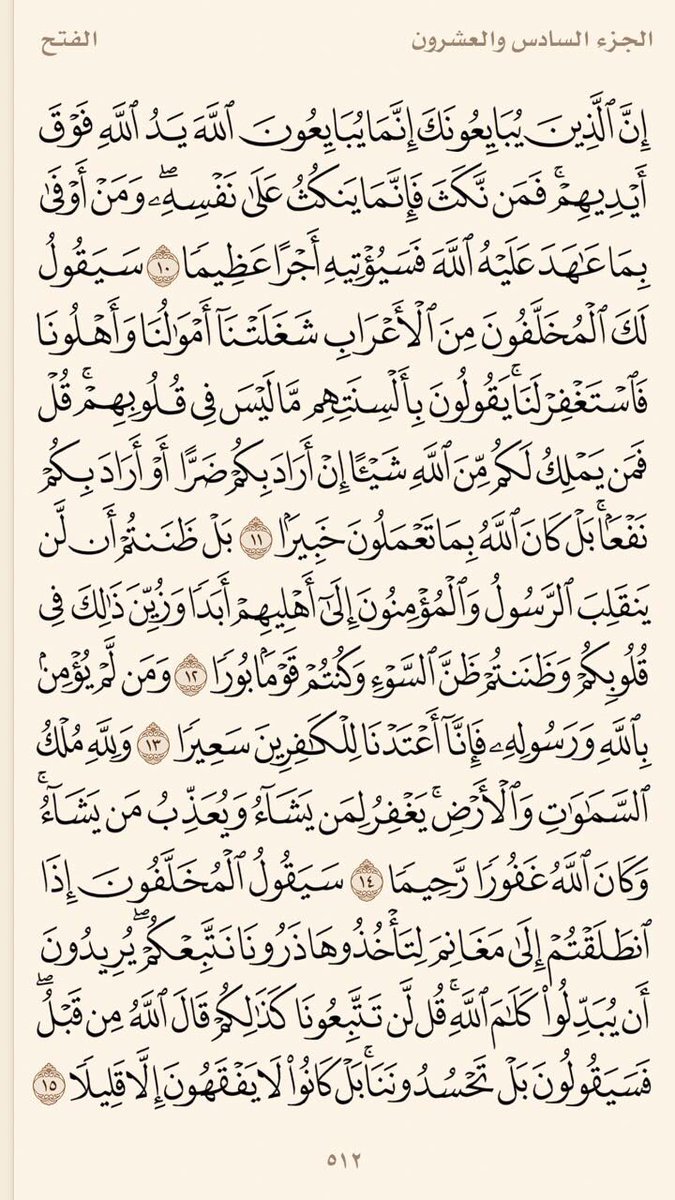 الجزء السادس والعشرون الفتح
إِنَّ ٱلَّذِينَ يُبَايِعُونَكَ إِنَّمَا يُبَايِعُونَ ٱللَّهَ يَدُ ٱللَّهِ فَوْقَ
أَيْدِيهِمْۚ فَمَن نَّكَثَ فَإِنَّمَا يَنكُثُ عَلَىٰ نَفْسِهِۦۖ وَمَنْ أَوْفَىٰ
بِمَا عَٰهَدَ عَلَيْهُ ٱللَّهَ فَسَيُؤْتِيهِ أَجْرًا عَظِيمٗا ١٠ سَيَقُولُ
لَكَ ٱلْمُخَلَّفُونَ مِنَ ٱلْأَعْرَابِ شَغَلَتْنَآ أَمْوَٰلُنَا وَأَهْلُونَا
فَٱسْتَغْفِرْ لَنَاۚ يَقُولُونَ بِأَلْسِنَتِهِم مَّا لَيْسَ فِي قُلُوبِهِمْۚ قُلْ
فَمَن يَمْلِكُ لَكُم مِّنَ ٱللَّهِ شَيْـًٔا إِنْ أَرَادَ بِكُمْ ضَرًّا أَوْ أَرَادَ بِكُمْ
نَفْعَۢاۚ بَلْ كَانَ ٱللَّهُ بِمَا تَعْمَلُونَ خَبِيرَۢا ١١ بَلْ ظَنَنتُمْ أَن لَّن
يَنقَلِبَ ٱلرَّسُولُ وَٱلْمُؤْمِنُونَ إِلَىٰٓ أَهْلِيهِمْ أَبَدٗا وَزُيِّنَ ذَٰلِكَ فِي
قُلُوبِكُمْ وَظَنَنتُمْ ظَنَّ ٱلسَّوْءِ وَكُنتُمْ قَوْمَۢا بُورٗا ١٢ وَمَن لَّمْ يُؤْمِنۢ
بِٱللَّهِ وَرَسُولِهِۦ فَإِنَّآ أَعْتَدْنَا لِلْكَٰفِرِينَ سَعِيرٗا ١٣ وَلِلَّهِ مُلْكُ
ٱلسَّمَٰوَٰتِ وَٱلْأَرْضِۚ يَغْفِرُ لِمَن يَشَآءُ وَيُعَذِّبُ مَن يَشَآءُۚ
وَكَانَ ٱللَّهُ غَفُورٗا رَّحِيمٗا ١٤ سَيَقُولُ ٱلْمُخَلَّفُونَ إِذَا
ٱنطَلَقْتُمْ إِلَىٰ مَغَانِمَ لِتَأْخُذُوهَا ذَرُونَا نَتَّبِعْكُمْۖ يُرِيدُونَ
أَن يُبَدِّلُوا۟ كَلَٰمَ ٱللَّهِۚ قُل لَّن تَتَّبِعُونَا كَذَٰلِكُمْ قَالَ ٱللَّهُ مِن قَبْلُۖ
فَسَيَقُولُونَ بَلْ تَحْسُدُونَنَاۚ بَلْ كَانُوا۟ لَا يَفْقَهُونَ إِلَّا قَلِيلٗا ١٥
٥١٢